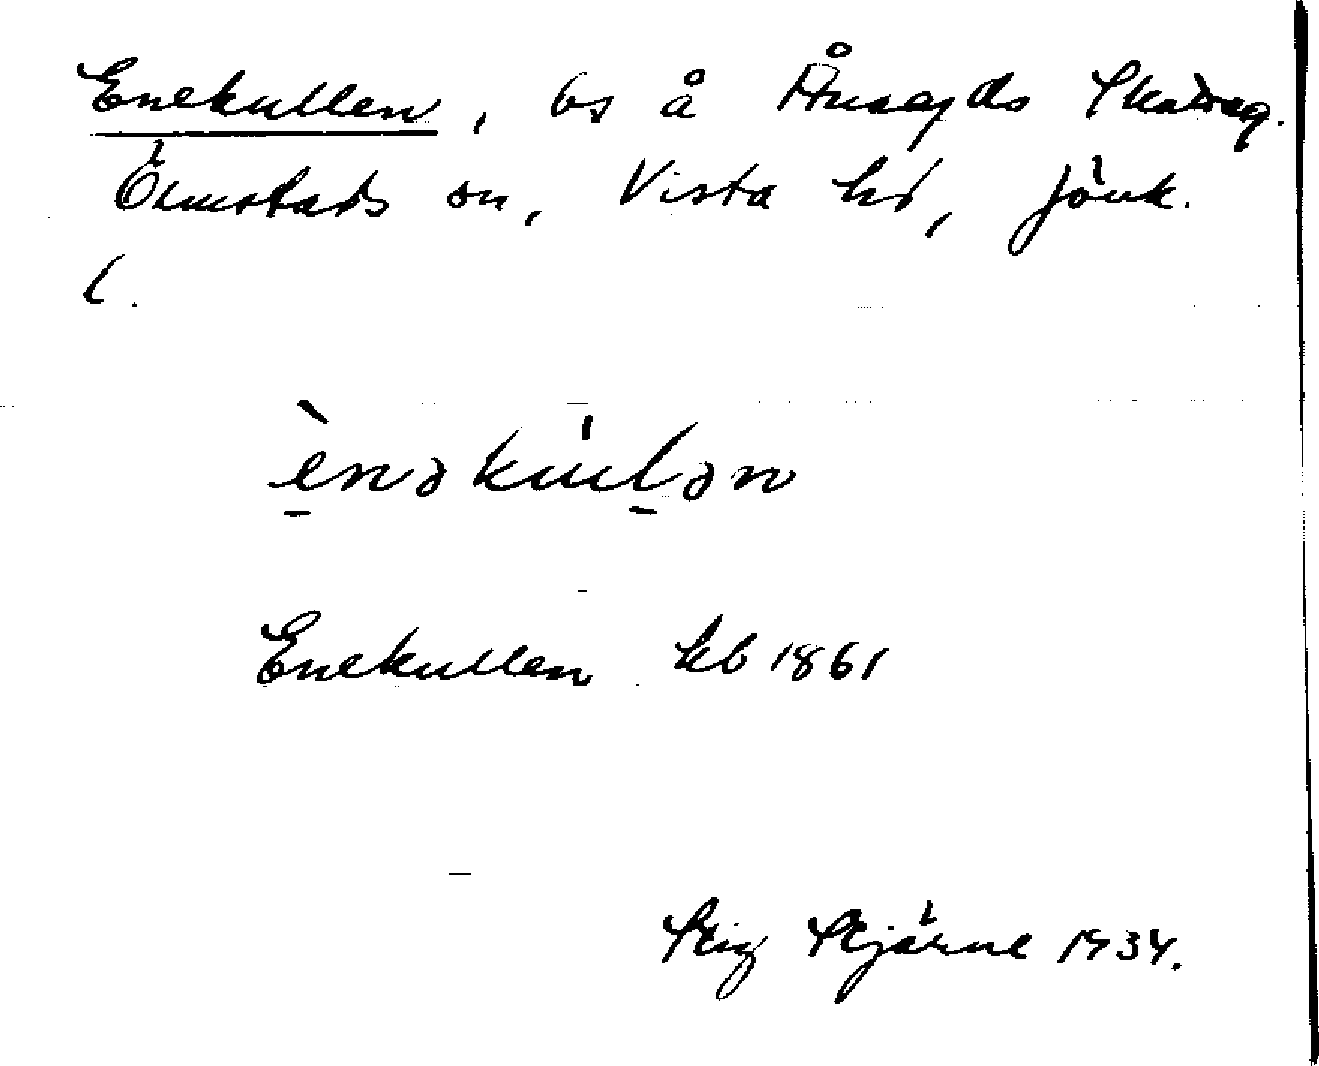 Enekullen, bs å Åsaryds Skatteg.
Ölmstads sn, Vista hd, Jönk.
l.
ènəku̍l̠ən
Enekullen kb 1861
Stig Stjärne 1934.